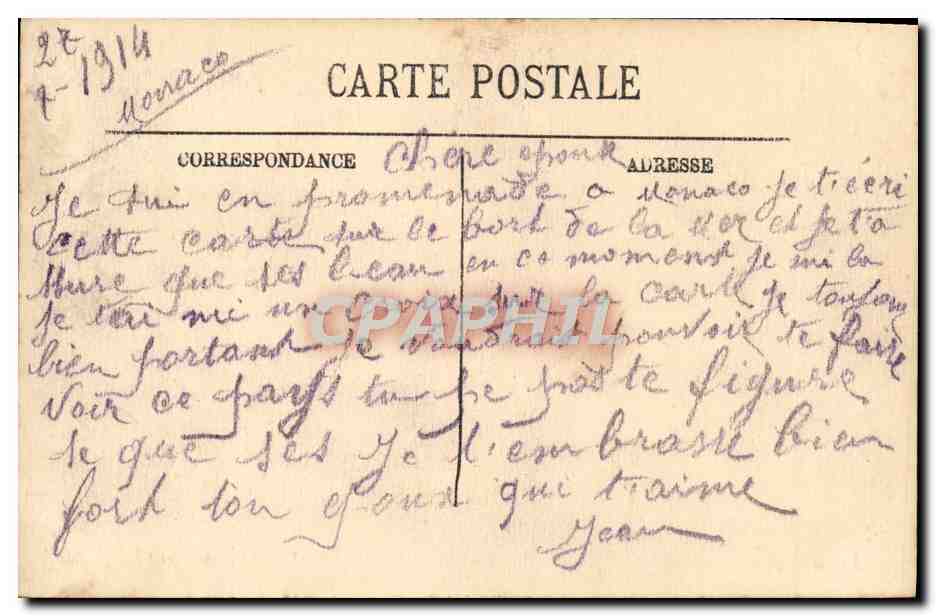 27
7-1914
Monaco
CARTE POSTALE
CORRESPONDANCE
ADRESSE
Chère epouse
Je sui en promenade a Monaco je t'écri
cette carte sur le bort de la mer et je t'a
ssure que ses beau en ce moment je mi la
je tai mi un croix sur la carte je toujour
bien portant je voudrait pouvoir te faire
voir ce pays tu pe pas te figure
se que ses Je t'embrasse bien
fort ton qui t'aime
Jean
CPAPHIL